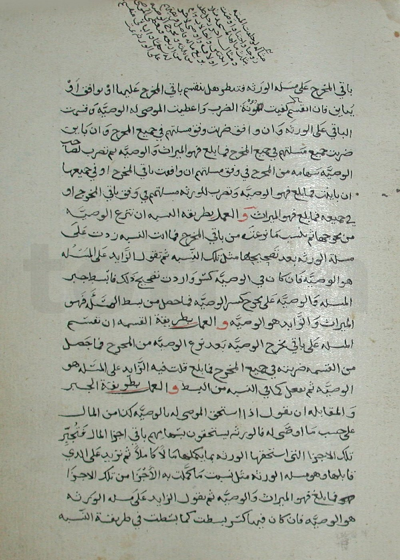 باقي المخرج على مسله الورثه فتنظر هل تنقسم باقي المخرج عليها او توافق او
يباين فان انقسم كفيت مؤنة الضرب واعطيت الموصى له الوصيه وقسمت
الباقي على الورثه وان وافق ضربت وفق مسلتهم في جميع المخرج وان باين
ضربت جميع مسلتهم في جميع المخرج فما بلغ فهو الميراث والوصيه ثم تضرب لصاحب
الوصيه سهامه من المخرج في وفق مسلتهم ان وافقت باقي المخرج او في جميعها
ان باينت فما بلغ فهو الوصيه وتضرب للورثه مسلتهم في وفق باقي المخرج او
في جميعه فما بلغ فهو الميراث و العمل بطريقه النسبه ان تنزع الوصيه
من مخرجها ثم تنسب ما نزعته من باقي المخرج فما اتت النسبه زدت على
مسله الورثه بعد تصحيحها مثل تلك النسبه ثم تقول الزايد على المسله
هو الوصيه فان كان في الوصيه كسر واردت تصحيح ذلك فابسط جميع
المسله والوصيه على مخرج كسر الوصيه فما حصل من بسط المسله فهو
الميراث والزايد هو الوصيه و العمل بطريقة القسمه ان تقسم
المسله على باقي مخرج الوصيه بعد نزع الوصيه من المخرج فما حصل
من القسمه ضربته في جميع المخرج فما بلغ قلت فيه الزايد على المسله هو
الوصيه ثم تفعل كما في النسبه من البسط و العمل بطريقة الجبر
والمقابله ان تقول اذا استحق الموصى له بالوصيه كذا من المال
على حسب ما اوصى له فالورثه يستحقون بسهامهم باقي اجزا المال فتجبر
تلك الاجزا التي استحقها الورثه بما يكملها مالا كاملا ثم تزيد على الذي
قابلها وهو مسله الورثه مثل نسبت ما كملت به الاجزا من تلك الاجزا
فما بلغ فهو الميراث والوصيه ثم تقول الزايد على مسله الورثه
هو الوصيه فان كان فيها كسر بسطت كما بسطت في طريقة النسبه